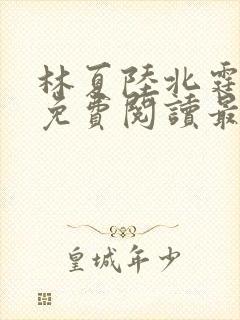 林夏陸北霆
免費閱讀最
皇城年少